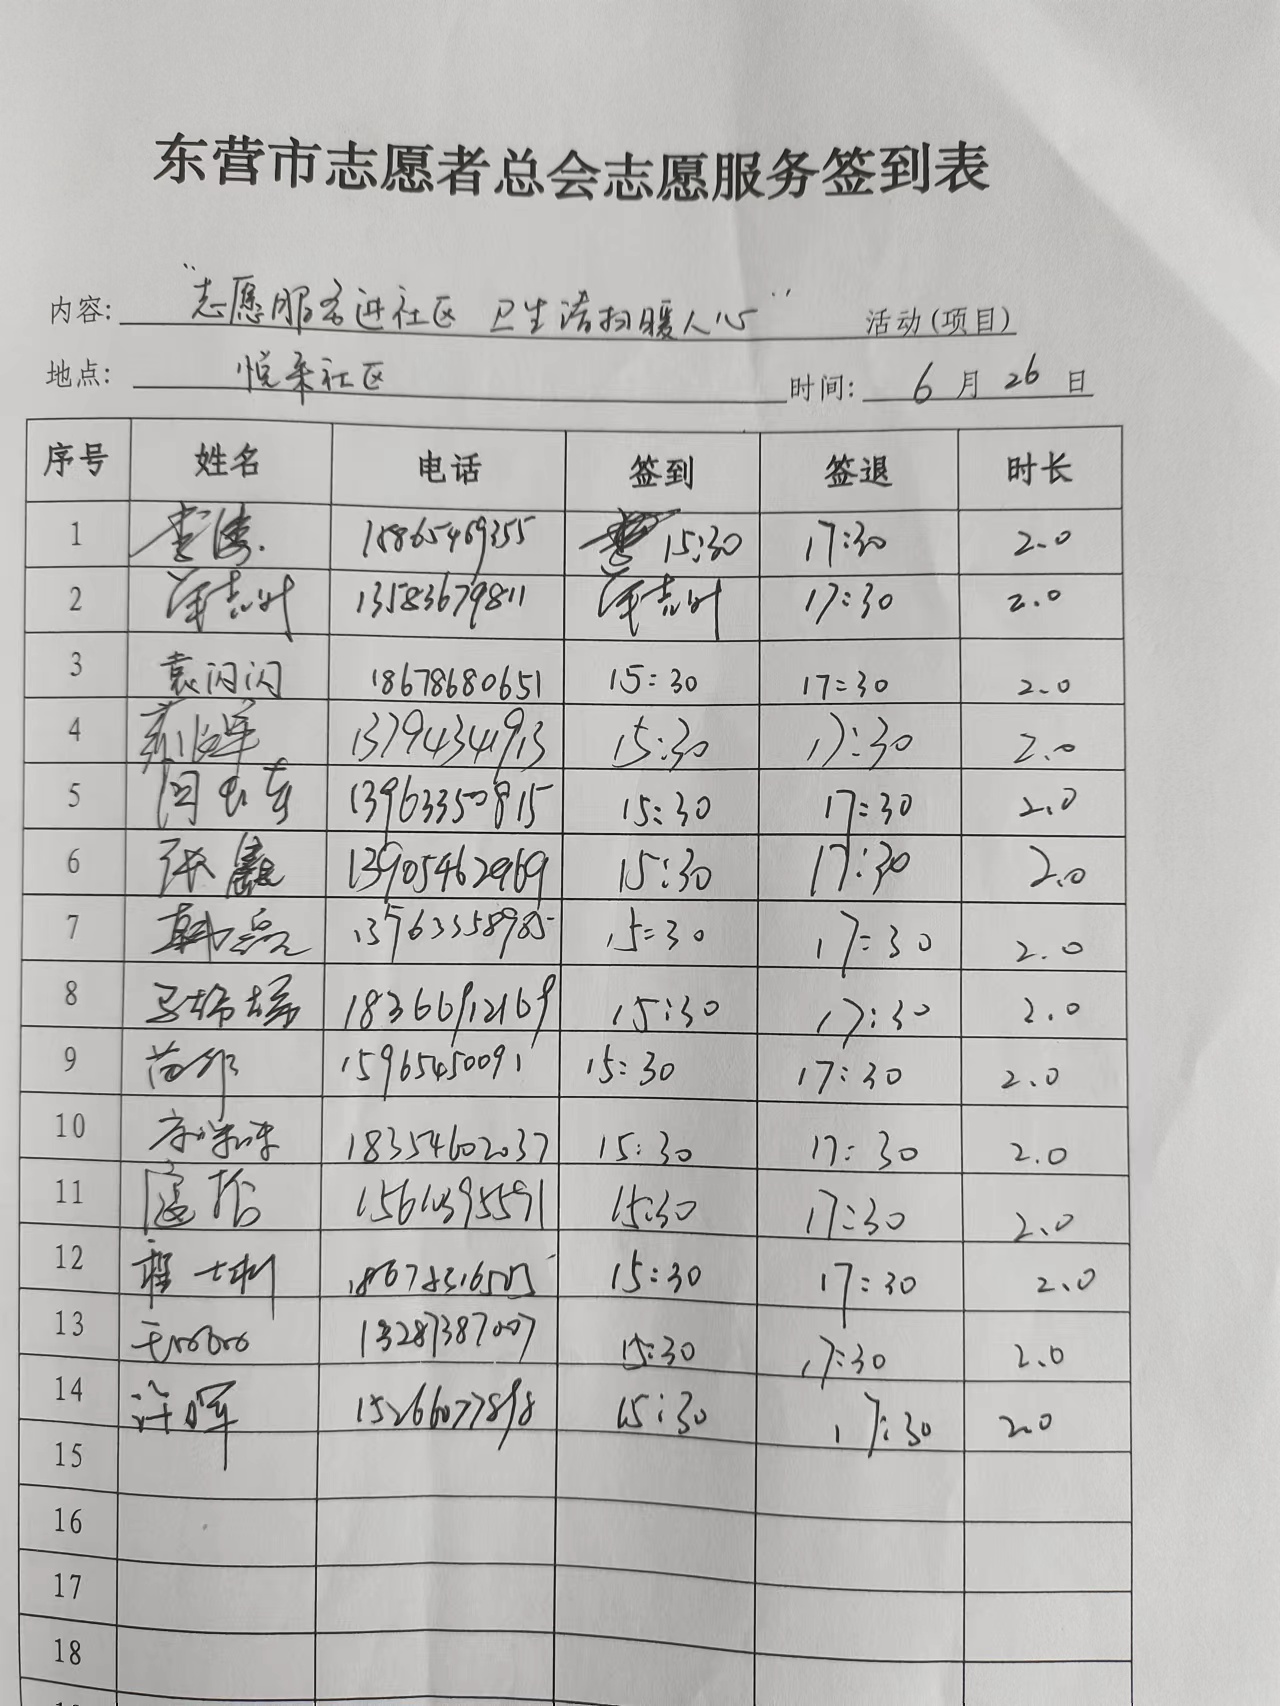 东营市志愿者总会志愿服务签到表
内容: "志愿服务进社区 卫生清扫暖人心" 活动(项目)
地点: 悦来社区 时间: 6 月 26 日
序号 姓名 电话 签到 签退 时长
1 李涛 18865469355 15:30 17:30 2.0
2 13583679811 17:30 2.0
3 袁闪闪 18678680651 15:30 17:30 2.0
4 13794341913 15:30 17:30 2.0
5 13963350815 15:30 17:30 2.0
6 张 13905462969 15:30 17:30 2.0
7 韩 15:30 17:30 2.0
8 18366912169 15:30 17:30 2.0
9 15965450091 15:30 17:30 2.0
10 18354602037 15:30 17:30 2.0
11 15:30 17:30 2.0
12 程 15:30 17:30 2.0
13 15:30 17:30 2.0
14 许晖 15266077898 15:30 17:30 2.0
15
16
17
18